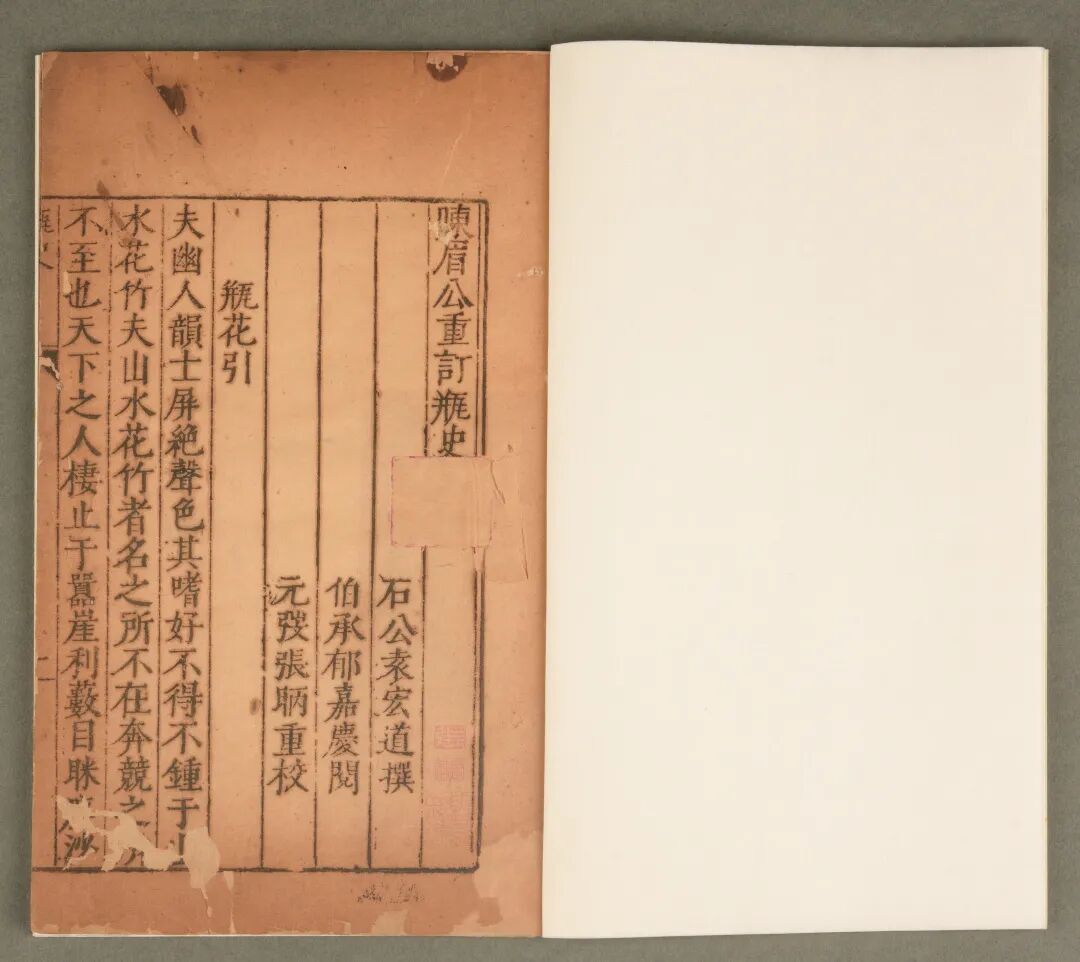 陳眉公重訂瓶史
石公袁宏道撰
伯承郁嘉慶閱
元弢張昞重校
瓶花引
夫幽人韻士屏絕聲色其嗜好不得不鍾于山
水花竹夫山水花竹者名之所不在奔競之
不至也天下之人棲止于囂崖利藪目眯沙